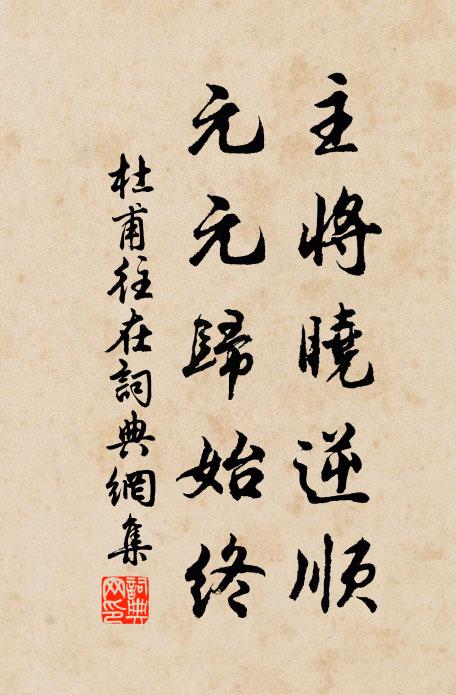 主將曉逆順
元元歸始終
杜甫往在詞典網集
詞典網印